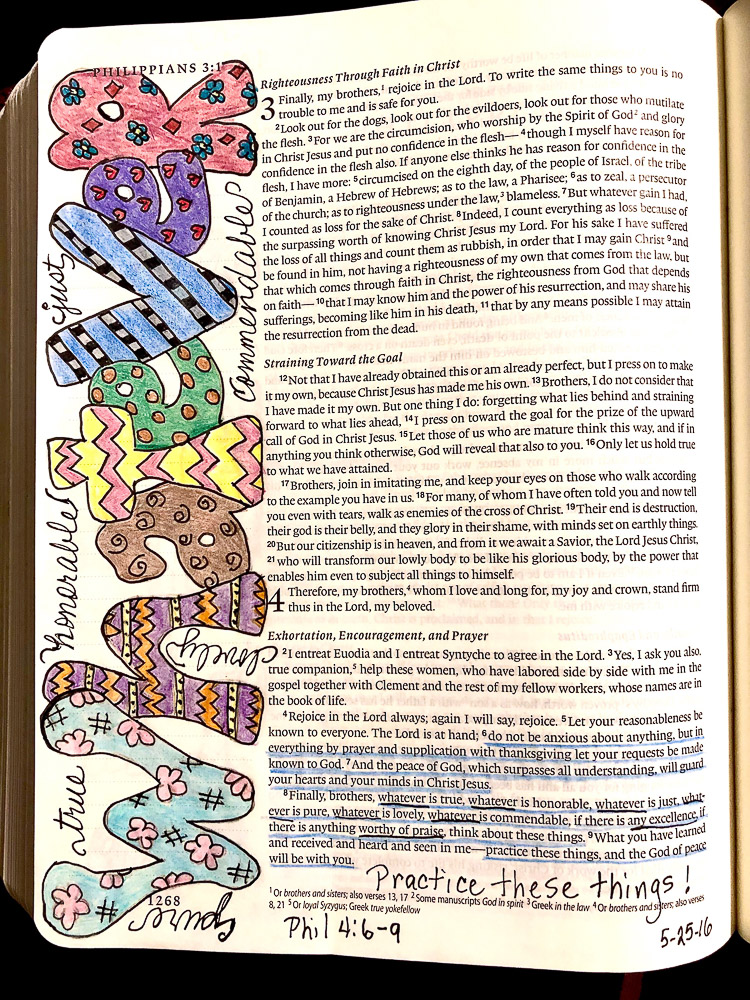 PHILIPPIANS 3:1
WHaTeVeR
just
commendable
honorable
lovely
true
pure
Righteousness Through Faith in Christ
3 Finally, my brothers,¹ rejoice in the Lord. To write the same things to you is no
trouble to me and is safe for you.
²Look out for the dogs, look out for the evildoers, look out for those who mutilate
the flesh. ³For we are the circumcision, who worship by the Spirit of God² and glory
in Christ Jesus and put no confidence in the flesh— ⁴though I myself have reason for
confidence in the flesh also. If anyone else thinks he has reason for confidence in the
flesh, I have more: ⁵circumcised on the eighth day, of the people of Israel, of the tribe
of Benjamin, a Hebrew of Hebrews; as to the law, a Pharisee; ⁶as to zeal, a persecutor
of the church; as to righteousness under the law,³ blameless. ⁷But whatever gain I had,
I counted as loss for the sake of Christ. ⁸Indeed, I count everything as loss because of
the surpassing worth of knowing Christ Jesus my Lord. For his sake I have suffered
the loss of all things and count them as rubbish, in order that I may gain Christ ⁹and
be found in him, not having a righteousness of my own that comes from the law, but
that which comes through faith in Christ, the righteousness from God that depends
on faith— ¹⁰that I may know him and the power of his resurrection, and may share his
sufferings, becoming like him in his death, ¹¹that by any means possible I may attain
the resurrection from the dead.
Straining Toward the Goal
¹²Not that I have already obtained this or am already perfect, but I press on to make
it my own, because Christ Jesus has made me his own. ¹³Brothers, I do not consider that
I have made it my own. But one thing I do: forgetting what lies behind and straining
forward to what lies ahead, ¹⁴I press on toward the goal for the prize of the upward
call of God in Christ Jesus. ¹⁵Let those of us who are mature think this way, and if in
anything you think otherwise, God will reveal that also to you. ¹⁶Only let us hold true
to what we have attained.
¹⁷Brothers, join in imitating me, and keep your eyes on those who walk according
to the example you have in us. ¹⁸For many, of whom I have often told you and now tell
you even with tears, walk as enemies of the cross of Christ. ¹⁹Their end is destruction,
their god is their belly, and they glory in their shame, with minds set on earthly things.
²⁰But our citizenship is in heaven, and from it we await a Savior, the Lord Jesus Christ,
²¹who will transform our lowly body to be like his glorious body, by the power that
enables him even to subject all things to himself.
4 Therefore, my brothers,⁴ whom I love and long for, my joy and crown, stand firm
thus in the Lord, my beloved.
Exhortation, Encouragement, and Prayer
²I entreat Euodia and I entreat Syntyche to agree in the Lord. ³Yes, I ask you also,
true companion,⁵ help these women, who have labored side by side with me in the
gospel together with Clement and the rest of my fellow workers, whose names are in
the book of life.
⁴Rejoice in the Lord always; again I will say, rejoice. ⁵Let your reasonableness be
known to everyone. The Lord is at hand; ⁶do not be anxious about anything, but in
everything by prayer and supplication with thanksgiving let your requests be made
known to God. ⁷And the peace of God, which surpasses all understanding, will guard
your hearts and your minds in Christ Jesus.
⁸Finally, brothers, whatever is true, whatever is honorable, whatever is just, what-
ever is pure, whatever is lovely, whatever is commendable, if there is any excellence, if
there is anything worthy of praise, think about these things. ⁹What you have learned
and received and heard and seen in me—practice these things, and the God of peace
will be with you.
Practice these things!
¹ Or brothers and sisters; also verses 13, 17 ² Some manuscripts God in spirit ³ Greek in the law ⁴ Or brothers and sisters; also verses
8, 21 ⁵ Or loyal Syzygus; Greek true yokefellow
1268
Phil 4:6-9
5-25-16